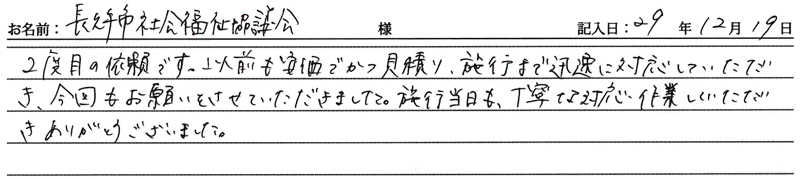 お名前：長久手市社会福祉協議会 様 記入日：29年12月19日
2度目の依頼です。以前も安価でかつ見積り、施行まで迅速に対応していただ
き、今回もお願いをさせていただきました。施行当日も、丁寧な対応・作業していただ
きありがとうございました。